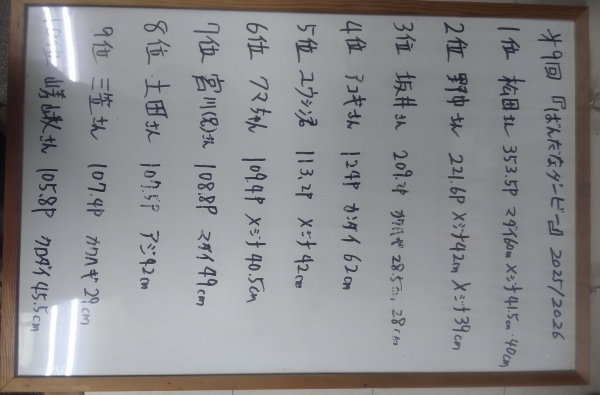 第9回『ばんだなダービー』 2025/2026
1位 松田さん 353.5P マダイ60cm メジナ41.5cm・40cm
2位 野中さん 221.6P メジナ42cm メジナ39cm
3位 坂井さん 209.2P カワハギ 28.5cm, 28cm
4位 アユキさん 124P カンダイ 62cm
5位 ユウジ君 113.2P メジナ 42cm
6位 クマちゃん 109.4P メジナ 40.5cm
7位 宮川(兄)さん 108.8P マダイ 49cm
8位 土田さん 107.5P アジ42cm
9位 三笠さん 107.4P カワハギ 29cm
10位 さん 105.8P クロダイ 45.5cm